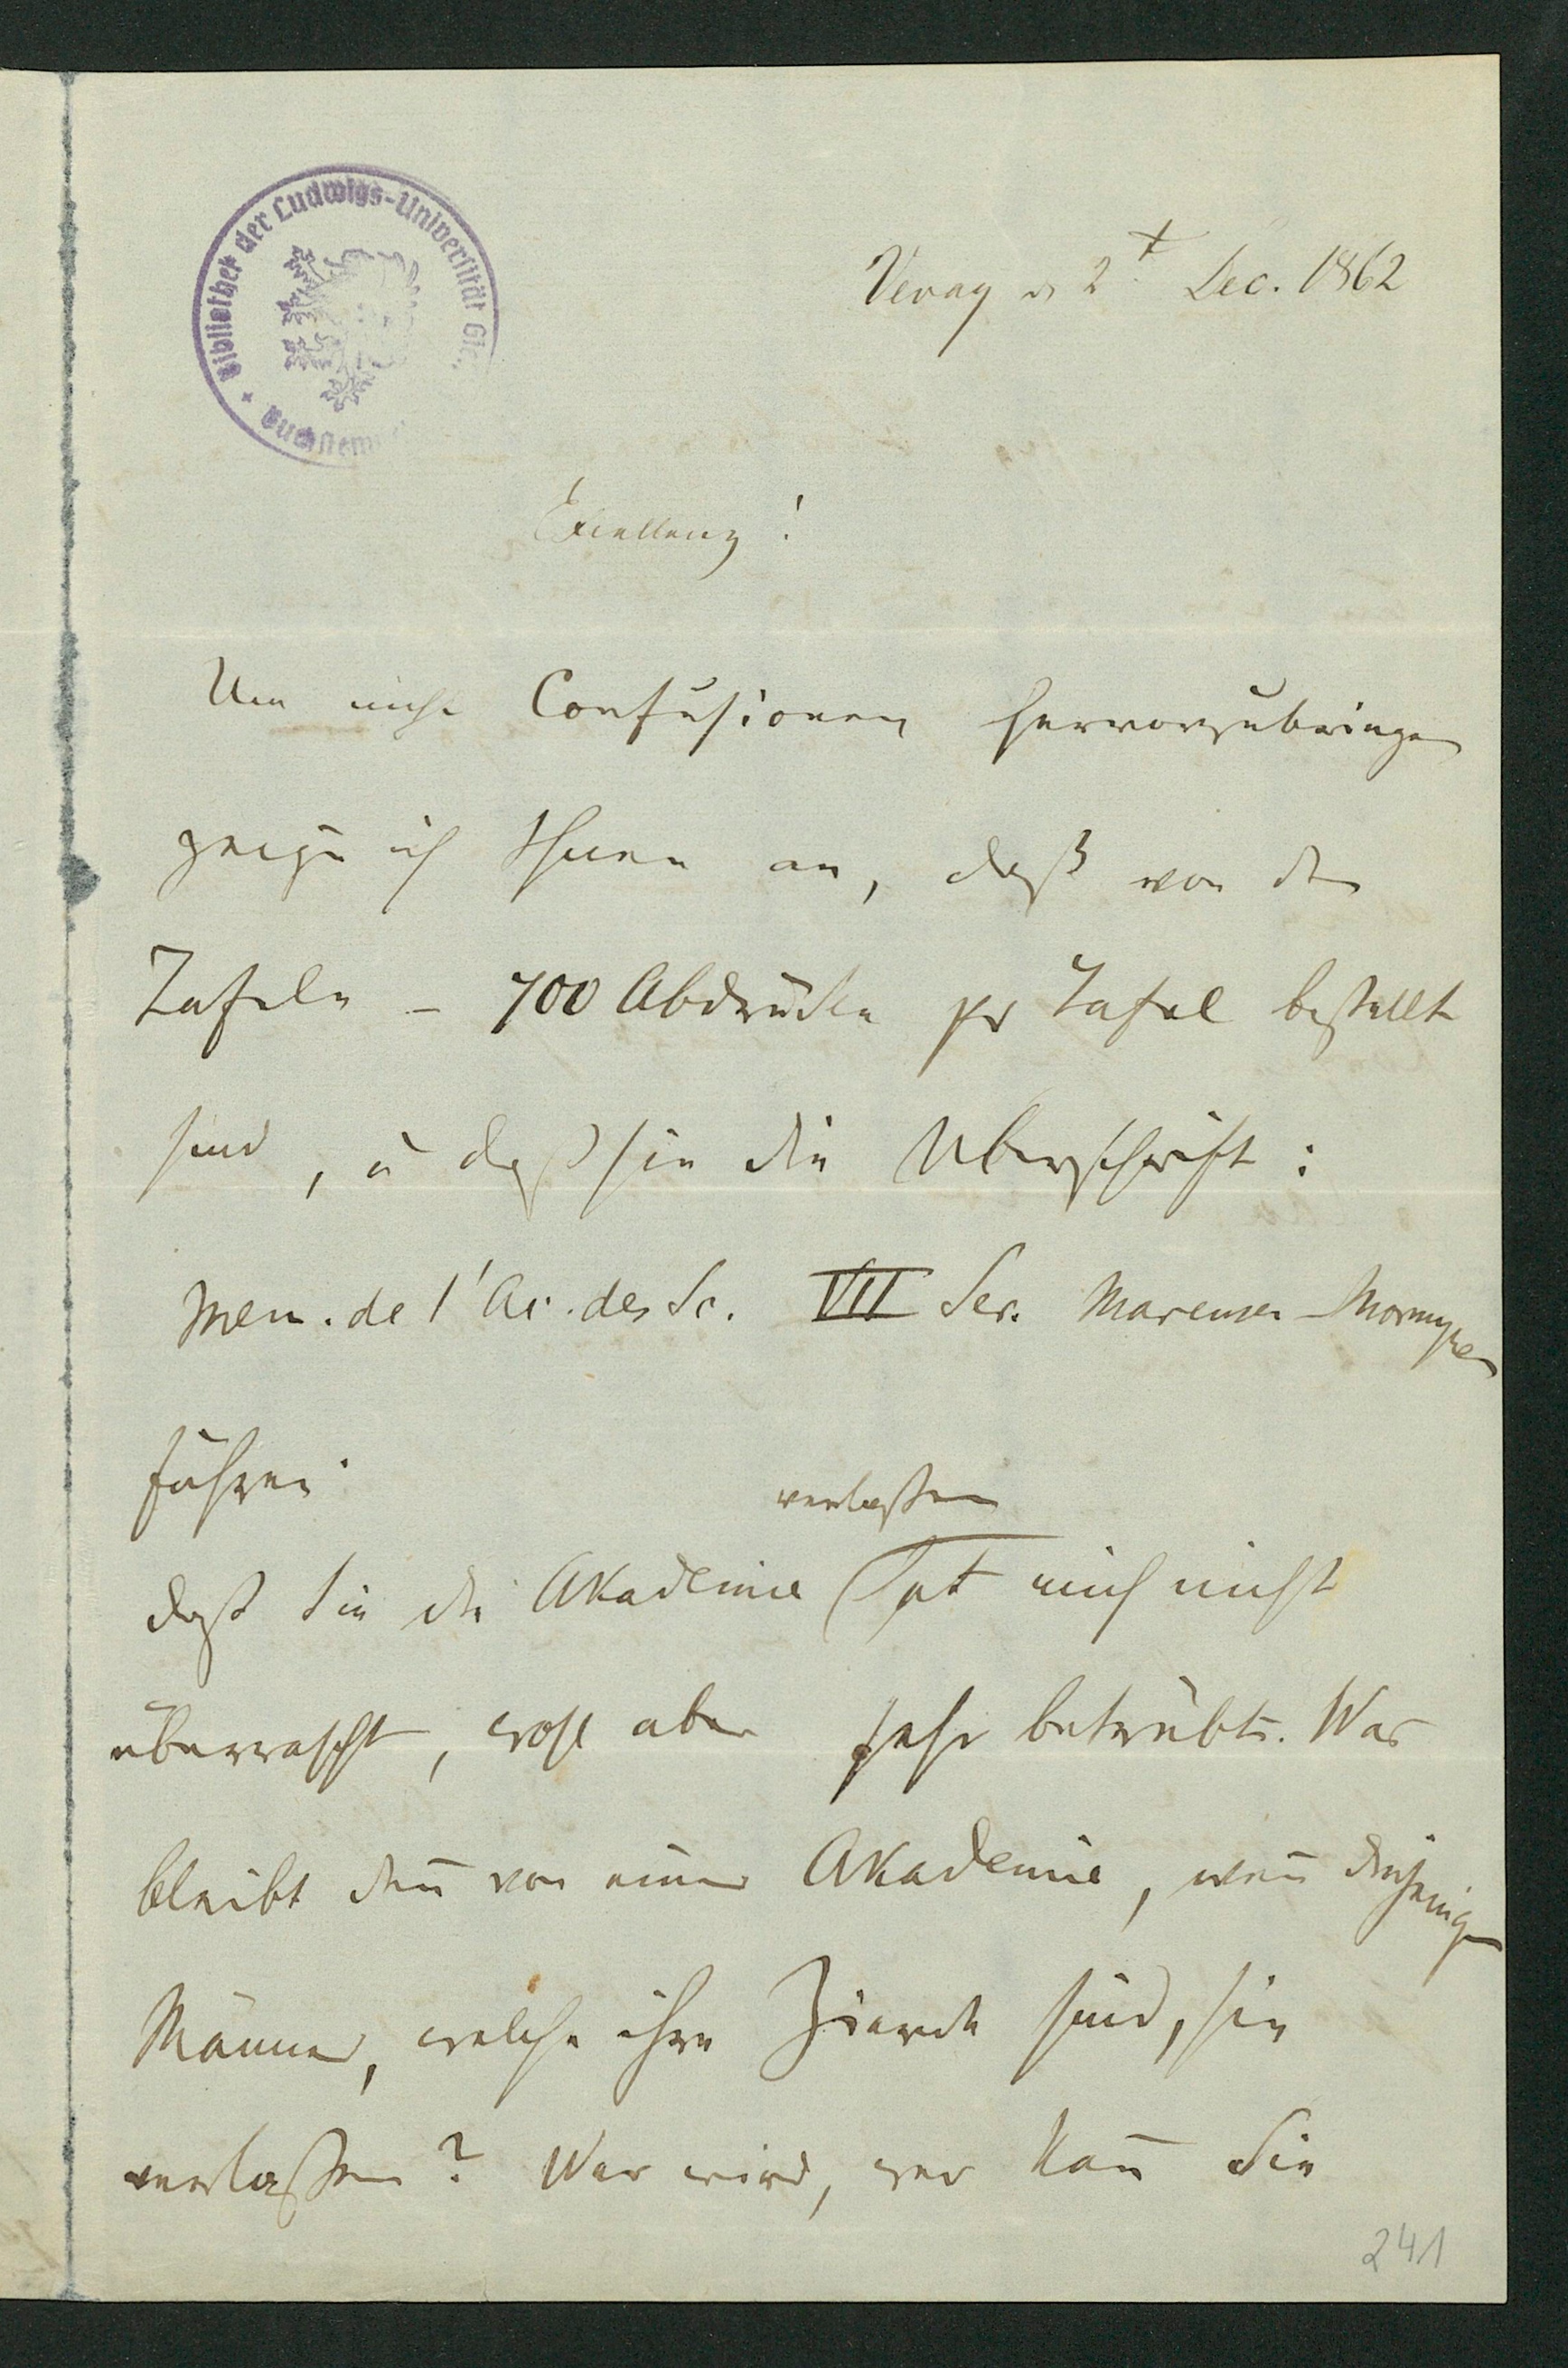 Bibliothek der Ludwigs-Universität Gie
Buchstem
d 2t Dec. 1862
Excellenz!
Um nicht Confusionen hervorzubringen
zeige ich Ihnen an, daß von den
Tafeln – 700 Abdrücke pr Tafel bestellt
sind, u daß sie die Überschrift:
Mem. de l'Ac. des Sc. VII Ser. Marcusen – Mormyren
führen.
verlaßen
Daß Sie die Akademie hat mich nicht
überrascht, wohl aber sehr betrübt. Was
bleibt den̄ von einer Akademie, wen̄ diejenigen
Männer, welche ihre Zierde sind, sie
verlaßen? Wer wird, wer kan̄ Sie
241